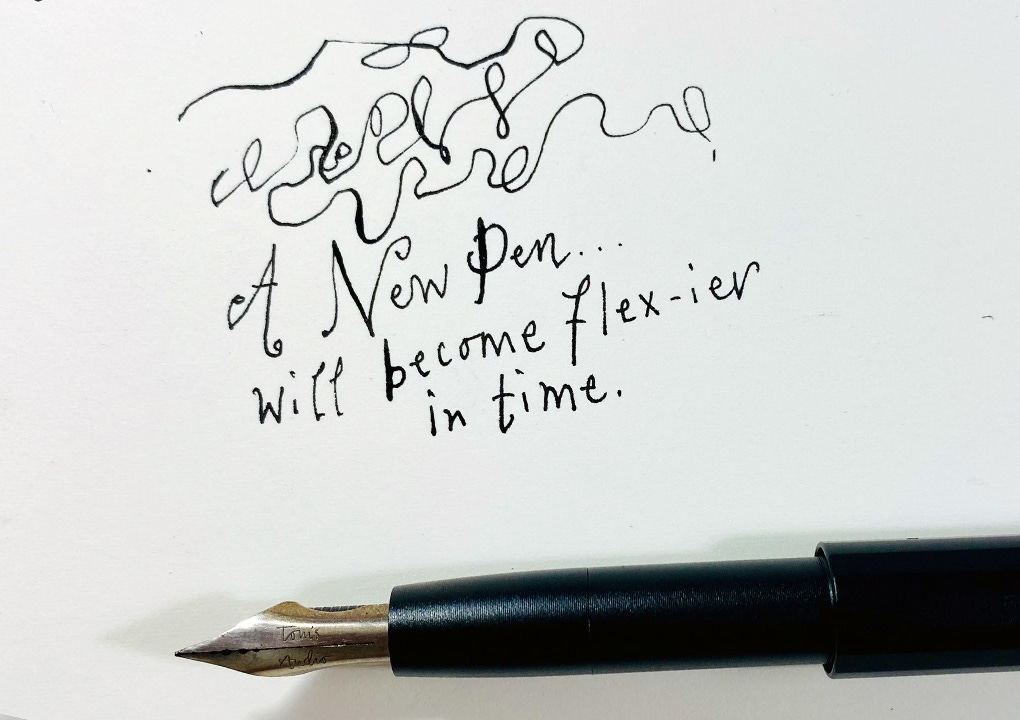 A New Pen...
will become flex-ier
in time.
Tom's
Andro